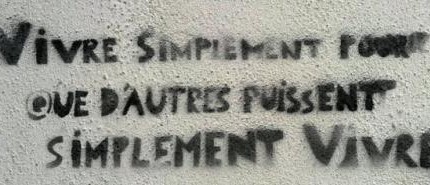 ViVRE SiMPLEMENT POUR
QUE D'AUTRES PUiSSENT
SiMPLEMENT ViVRE